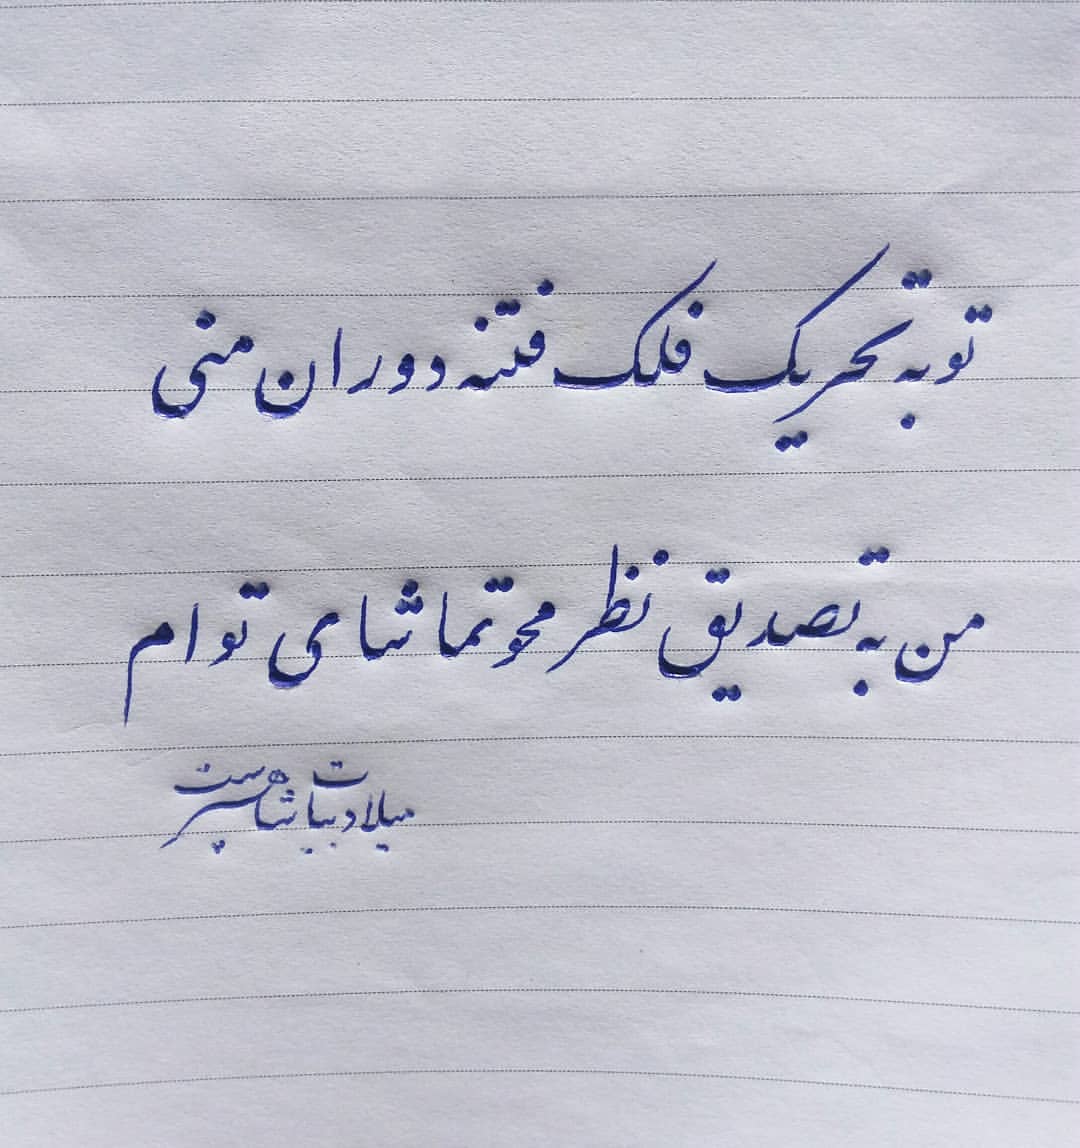 تو به تحریک فلک فتنه دوران منی
من به تصدیق نظر محو تماشای توام
میلاد بیات شاهپرست